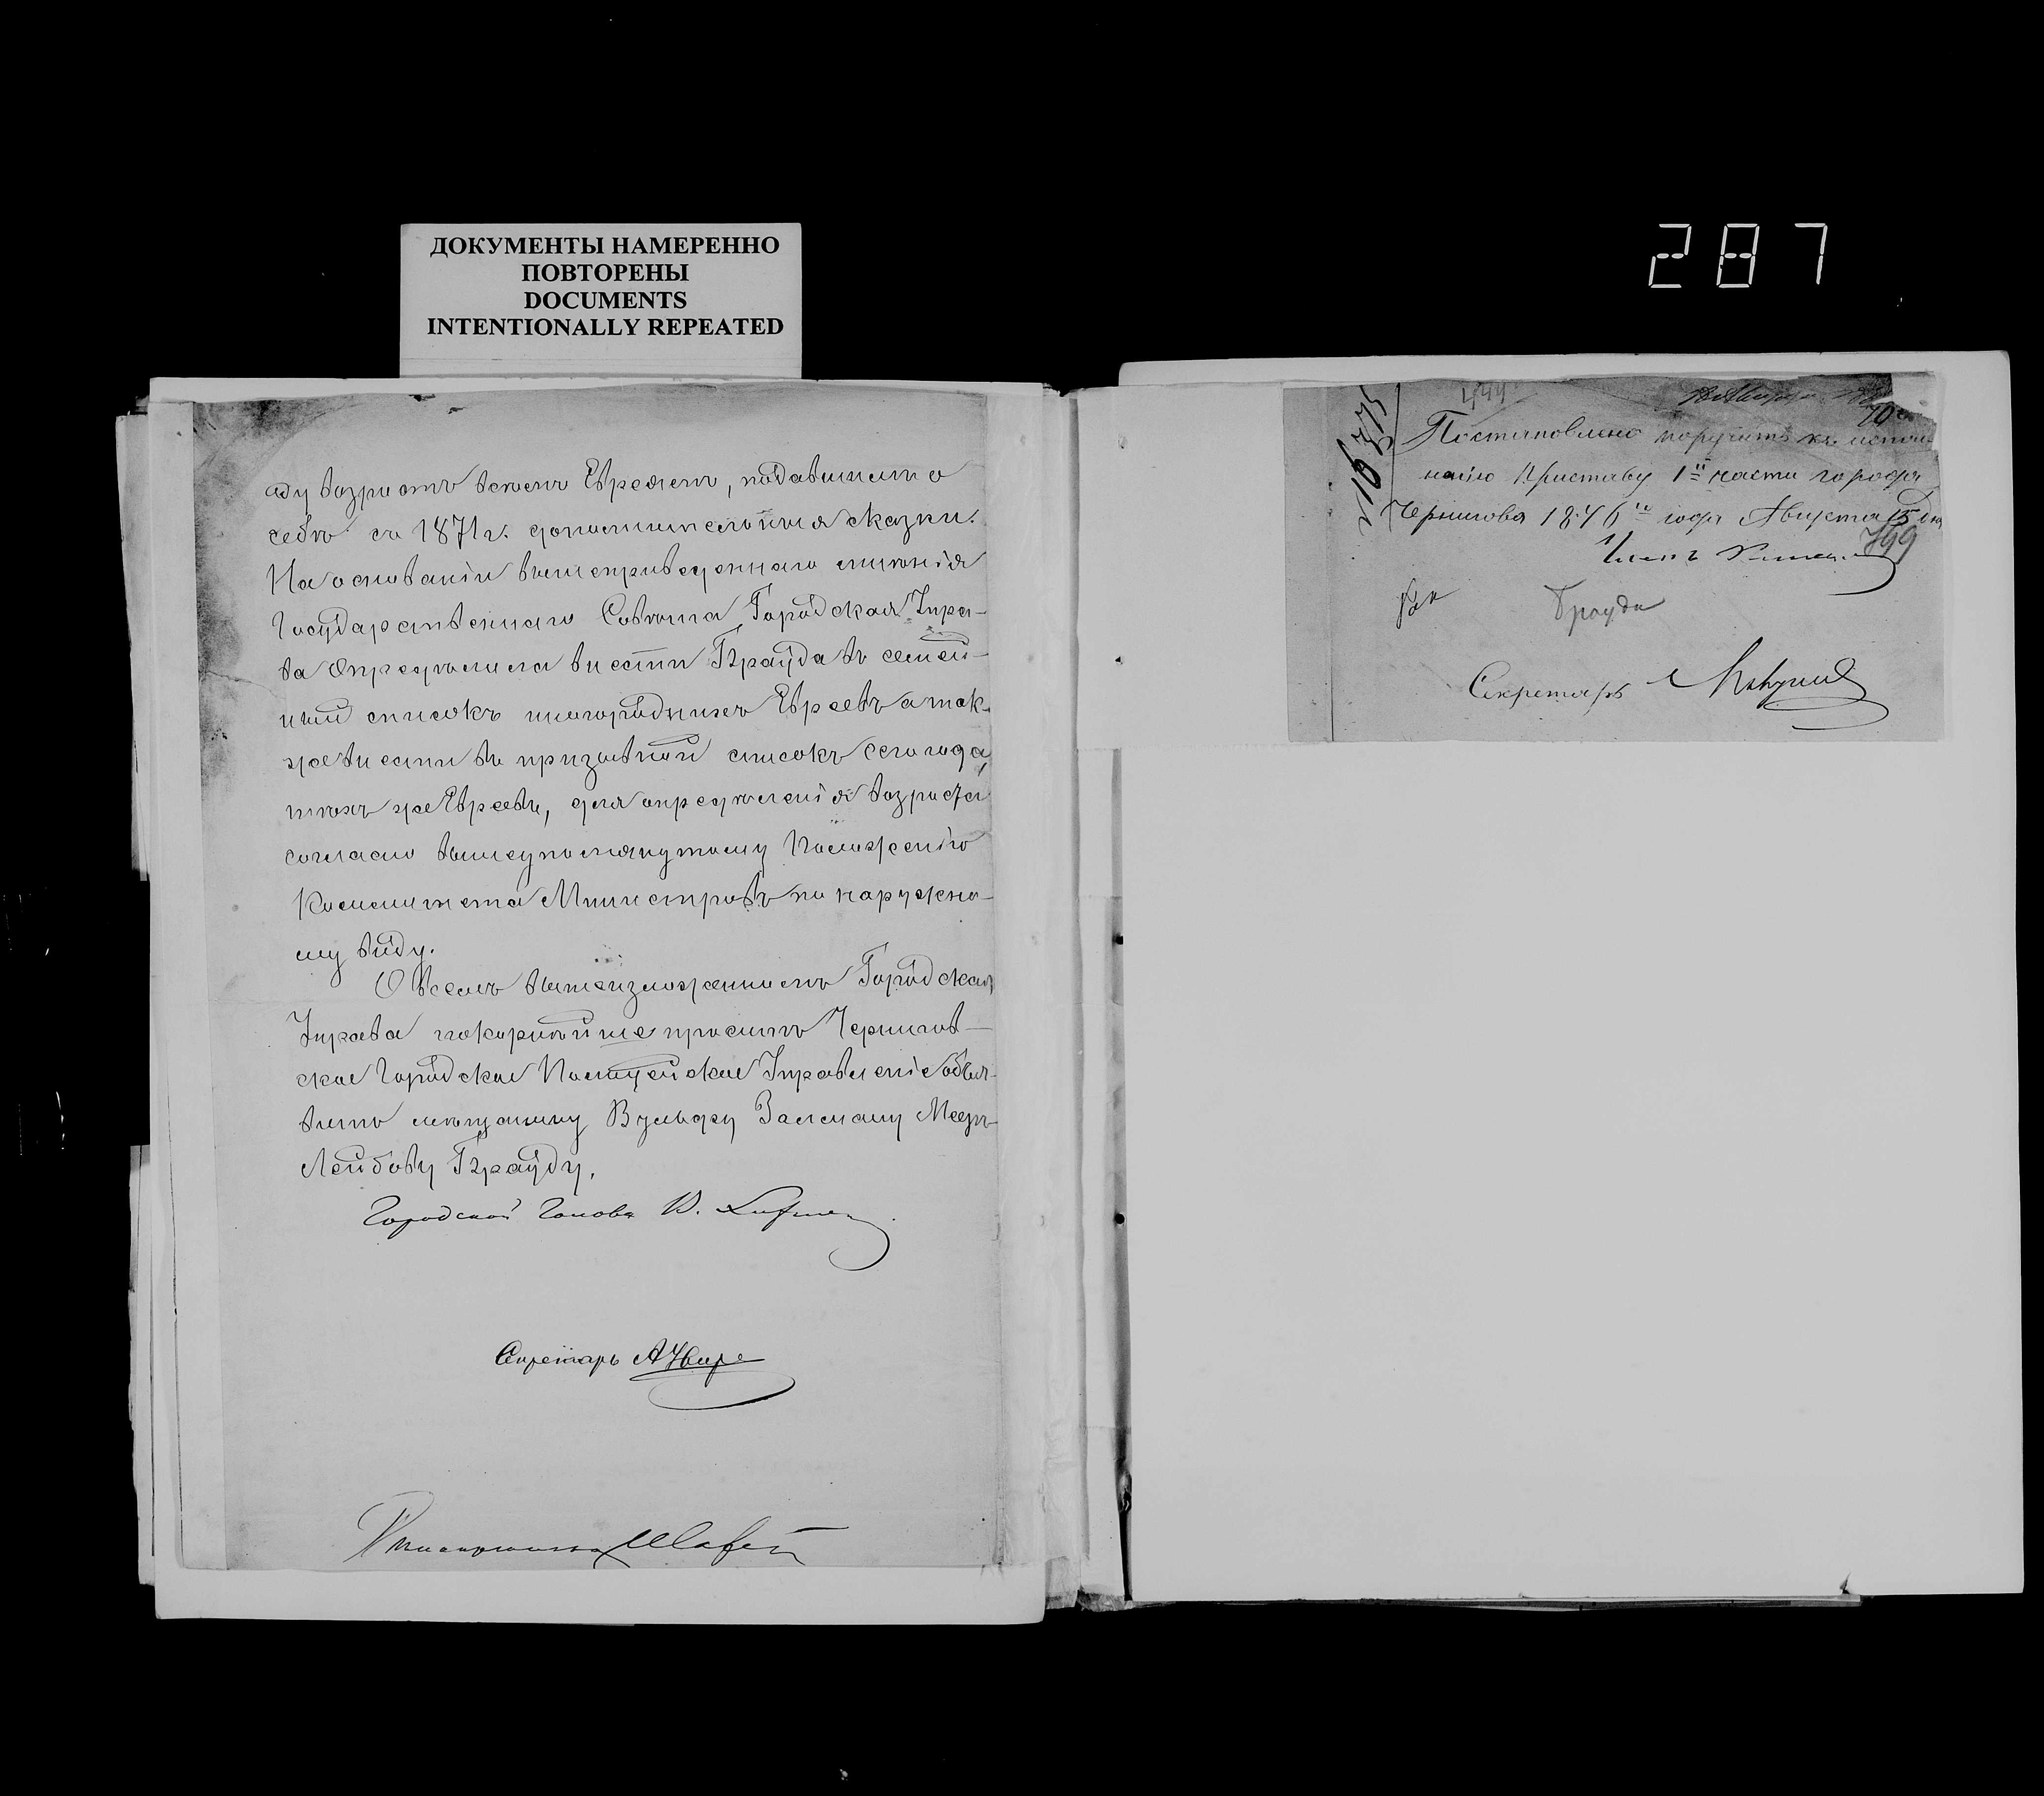 ДОКУМЕНТЫ НАМЕРЕННО
ПОВТОРЕНЫ
DOCUMENTS
INTENTIONALLY REPEATED
287
ду возрастъ всѣмъ Евреямъ, подавшимъ о
себѣ въ 1871 г. дополнительныя сказки.
На основаніи вышеприведеннаго мнѣнія
Государственнаго Совѣта Городская Упра-
ва опредѣлила внести Брауда въ семей-
ный списокъ иногороднихъ Евреевъ а так-
же внести въ призывной списокъ сего года,
тѣхъ же Евреевъ, для опредѣленія возраста
согласно вышеупомянутому Положенію
Комитета Министровъ по наружно-
му виду.
О всемъ вышеизложенномъ Городская
Управа покорнѣйше проситъ Чернигов-
ское Городское Полицейское Управленіе объя-
вить мѣщанину Вульфу Залману Меер-
Лейбову Брауду.
Городской Голова В.
Секретарь
444
Постановлено поручить къ испол-
нению Приставу 1й части города
Чернигова 1876 года Августа 15 дня
799
Членъ
Брауда
Секретарь